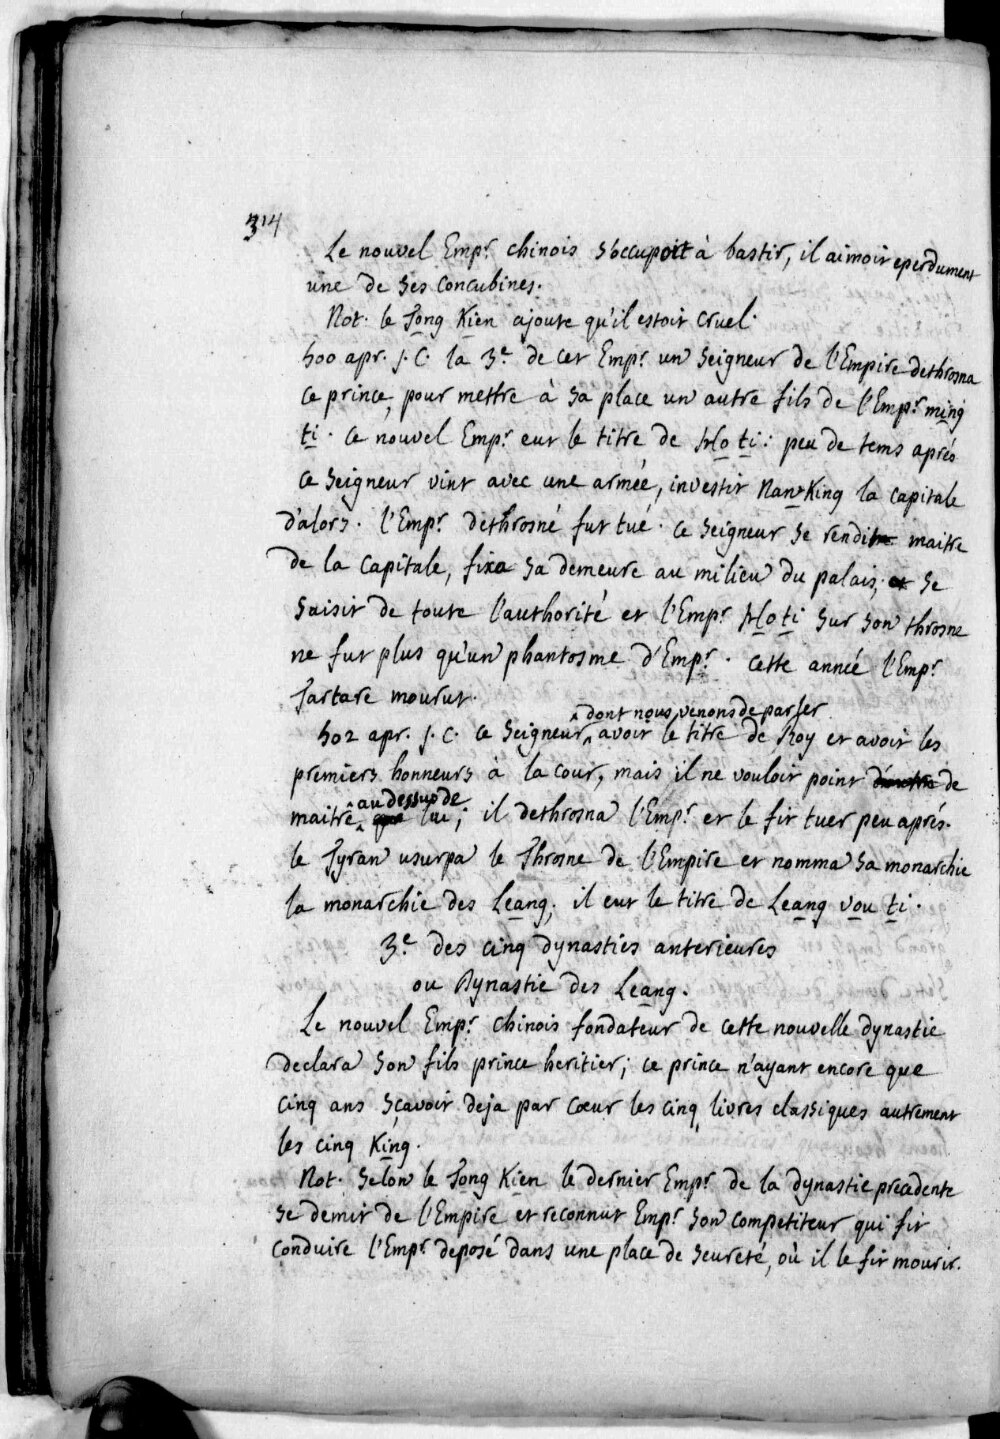 314
Le nouvel Empr. chinois s'occupoit à bastir, il aimoit eperdument
une de ses concubines.
Not. le Tong Kien ajoute qu'il estoit cruel.
500 apr. J. C. la 3e. de cet Empr. un seigneur de l'Empire dethrosna
ce prince, pour mettre à sa place un autre fils de l'Empr. ming
ti. ce nouvel Empr. eut le titre de Ho ti: peu de tems aprés
ce seigneur vint avec une armée, investir Nan King la capitale
d'alors. l'Empr. dethrosné fut tué. ce seigneur se rendit maitre
de la capitale, fixa sa demeure au milieu du palais, se
saisit de toute l'authorité et l'Empr. Ho ti sur son throsne
ne fut plus qu'un phantosme d'Empr. cette année l'Empr.
Tartare mourut.
dont nous venons de parler
502 apr. J. C. ce seigneur avoit le titre de Roy et avoit les
premiers honneurs à la cour, mais il ne vouloit point de
au dessus de
maitre lui; il dethrosna l'Empr. et le fit tuer peu aprés.
le Tyran usurpa le Throsne de l'Empire et nomma sa monarchie
la monarchie des Leang, il eut le titre de Leang vou ti.
3e. des cinq dynasties anterieures
ou Dynastie des Leang.
Le nouvel Empr. chinois fondateur de cette nouvelle dynastie
declara son fils prince heritier; ce prince n'ayant encore que
cinq ans sçavoit deja par cœur les cinq livres classiques autrement
les cinq King.
Not. Selon le Tong Kien le dernier Empr. de la dynastie precedente
se demit de l'Empire et reconnut Empr. son competiteur qui fit
conduire l'Empr. deposé dans une place de seureté, où il le fit mourir.